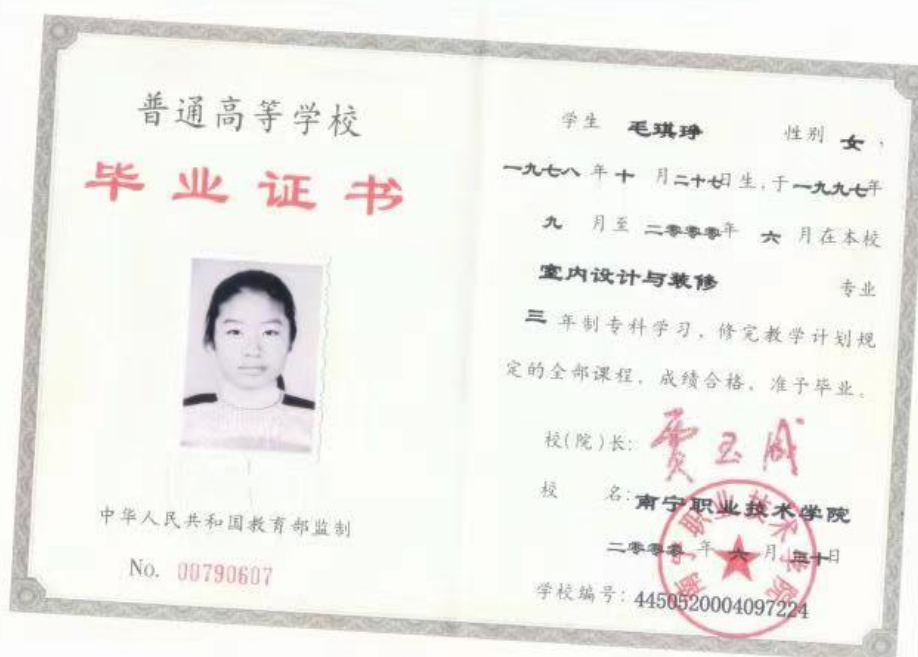 普通高等学校
毕业证书
中华人民共和国教育部监制
No. 00790607
学生 毛琪琤 性别 女，
一九七八 年 十 月 二十七日生，于 一九九七年
九 月至 二零零零年 六 月在本校
室内设计与装修 专业
三 年制专科学习，修完教学计划规
定的全部课程，成绩合格，准予毕业。
校(院)长：
校 名：南宁职业技术学院
二零零零 年 六 月 三十日
学校编号：4450520004097224
南宁职业技术学院